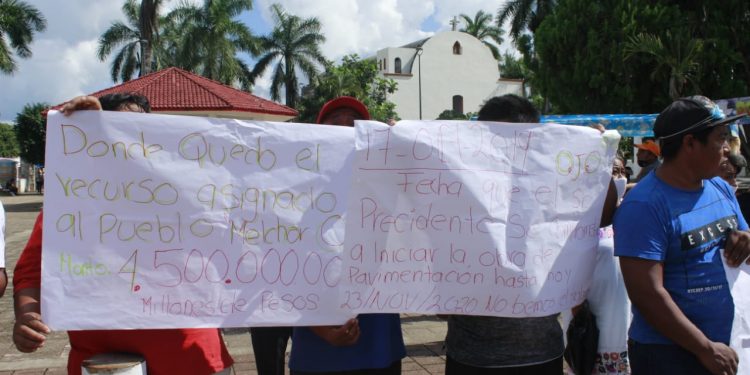 Donde Quedo el
recurso asignado
al Pueblo Melchor
Monto: 4.500.000.00
Millones de Pesos
17-Oct-2019
OJO
Fecha que el
Precidente Se
a Iniciar la obra de
Pavimentación hasta hoy
23/NOV/2020 No
EXPRESS